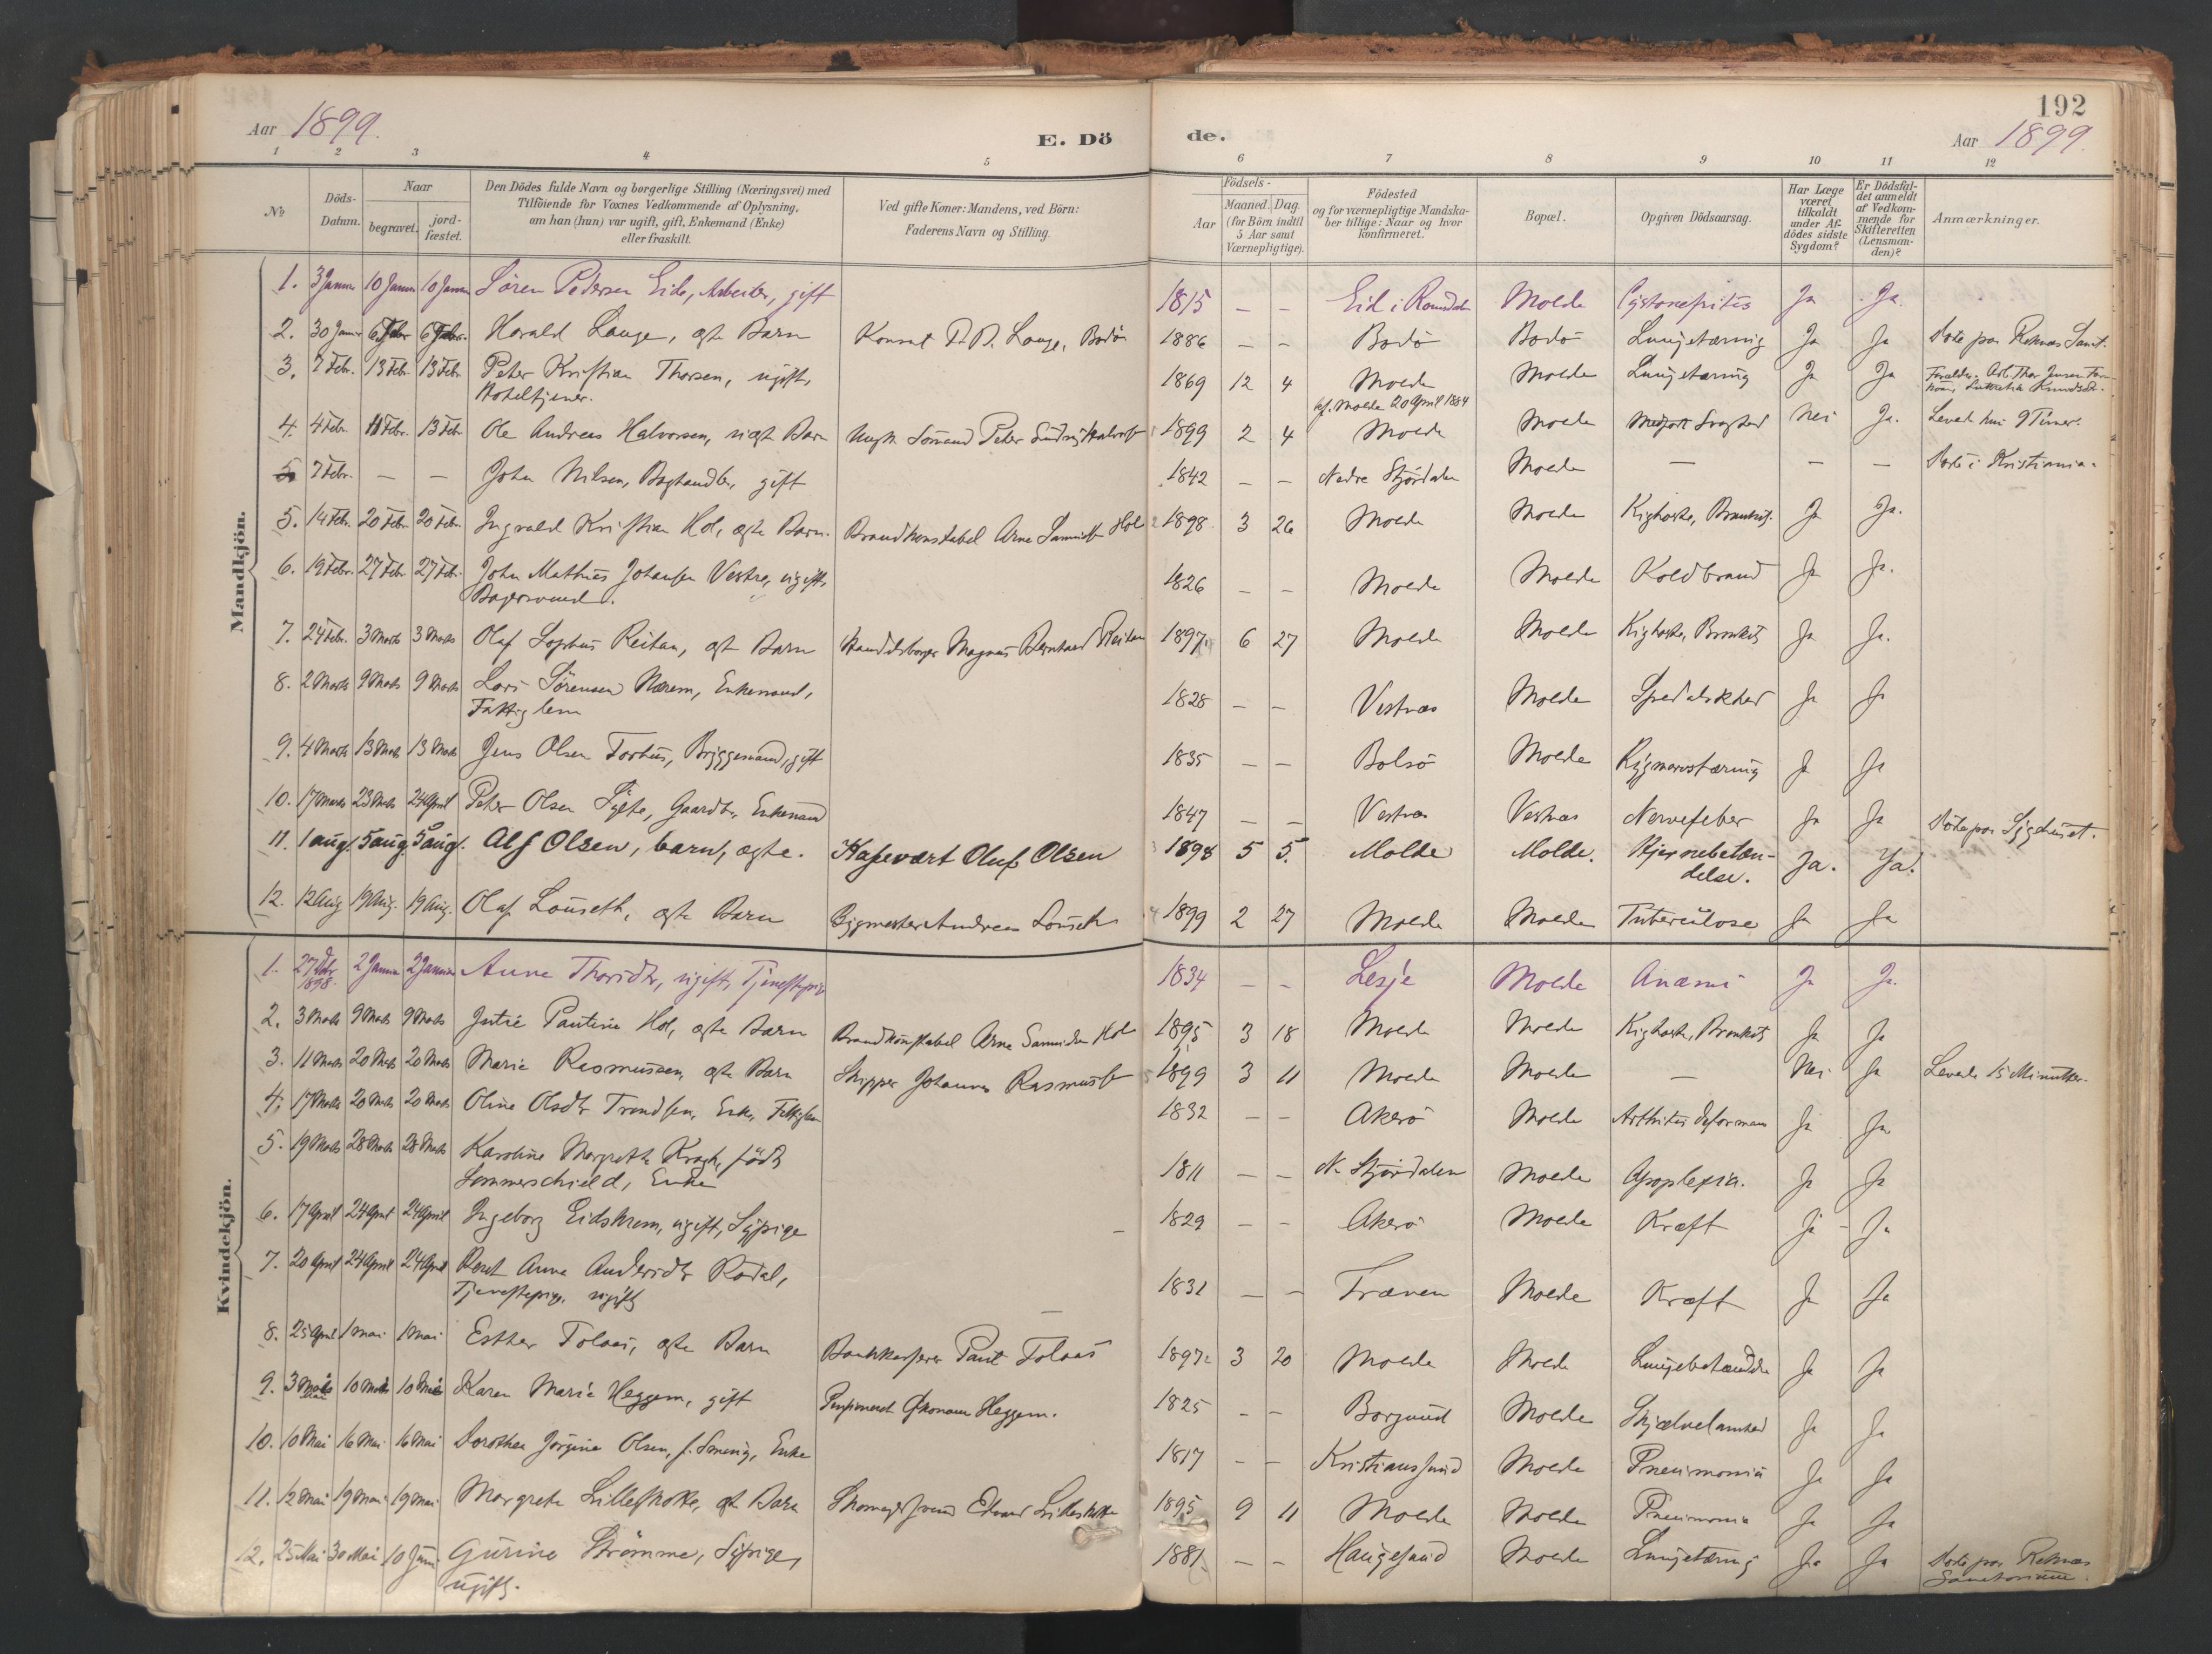 192
Aar 1899.
E. Dö
de.
Aar 1899.
1 2 3 4 5 6 7 8 9 10 11 12
№
Döds-
Datum.
Naar
begravet.
jord-
fæstet.
Den Dödes fulde Navn og borgerlige Stilling (Næringsvei) med
Tilföiende for Voxnes Vedkommende af Oplysning,
om han (hun) var ugift, gift, Enkemand (Enke)
eller fraskilt.
Ved gifte Koner: Mandens, ved Börn:
Faderens Navn og Stilling.
Födsels-
Aar
Maaned. Dag.
(for Börn indtil
5 Aar samt
Værnepligtige).
Födested
og for værnepligtige Mandska-
ber tillige: Naar og hvor
konfirmeret.
Bopæl.
Opgiven Dödsaarsag.
Har Læge
været
tilkaldt
under Af-
dödes sidste
Sygdom?
Er Dödsfal-
det anmeldt
af Vedkom-
mende for
Skifteretten
(Lensman-
den)?
Anmærkninger.
Mandkjön.
1. 3 Januar 10 Januar 10 Januar Sören Pedersen Eide, Arbeider, gift 1815 — — Eid i Romsdalen Molde Ja Ja.
2. 30 Januar 6 Febr 6 Febr. Harald Lange, ægte Barn Konsul Lange, Bodö 1886 — — Bodö Bodö Lungetæring Ja Ja Döde paa Reknæs Sanat.
3. 7 Febr. 13 Febr. 13 Febr Peter Kristian Thorsen, ugift, 1869 12 4 Molde Molde Lungetæring Ja Ja
Hoteltjener. kf. Molde 20 April 1884
4. 4 Febr. 11 Febr. 13 Febr Ole Andreas Halvorsen, uægte Barn Ungk. Sömand Peter 1899 2 4 Molde Molde Medfödt Svaghed Nei Ja. Levede kun 9 Timer.
5 7 Febr. — — John Nilsen, gift 1842 — — Nedre Stjördalen Molde — — — Döde i Kristiania.
5. 14 Feb. 20 Febr 20 Febr. Ingvald Kristian Hol, ægte Barn. Brandkonstabel Arne Hol 1898 3 26 Molde Molde Kighoste, Bronkit. Ja Ja.
6. 19 Febr. 27 Feb 27 Feb. John Mathias Johansen Vestre, ugift, 1826 — — Molde Molde Koldbrand Ja Ja.
Bagersvend.
7. 24 Febr. 3 Marts 3 Marts Olaf Sophus Reitan, ægte Barn Handelsborger Magnus Bernhard Reitan 1897 6 27 Molde Molde Kighoste, Bronkit Ja Ja.
8. 2 Marts 9 Marts 9 Marts Lars Sörensen Nærem, Enkemand, 1828 — — Vestnæs Molde Spedalskhed Ja Ja
Fattiglem
9. 4 Marts 13 Marts 13 Marts Jens Olsen Torhus, Bryggemand, gift 1835 — — Bolsö Molde Rygmarvstæring Ja Ja
10. 17 Marts 23 Marts 24 April Peter Olsen Sylte, Gaardbr. Enkemand 1847 — — Vestnæs Vestnæs Nervefeber Ja Ja Döde paa Sygehuset.
11. 1 aug. 5 aug. 5 aug. Alf Olsen, barn, ægte. Kafevært Oluf Olsen 1898 5 5. Molde Molde. Hjernebetæn-
delse. Ja. Ja!
12. 12 Aug 19 Aug. 19 Aug. Olaf Louseth, ægte Barn Bygmester Andreas Louseth 1899 2 27 Molde Molde Tuberculose Ja Ja
Kvindekjön.
1. 27 Dbr 1898. 2 Januar 2 Januar Anne Thorsdtr, ugift, Tjenestepige 1834 — — Lesje Molde Anæmi Ja Ja.
2. 3 Marts 9 Marts 9 Marts Jutie Pauline Hol, ægte Barn Brandkonstabel Arne Hol 1895 3 18 Molde Molde Kighoste, Bronkit Ja Ja
3. 11 Marts 20 Marts 20 Marts Marie Rasmussen, ægte Barn Skipper Johannes Rasmussen 1899 3 11 Molde Molde — Nei Ja Levede 15 Minutter.
4. 17 Marts 20 Marts 20 Marts Oline Olsdtr Trondsen, Enke, Fattiglem 1832 — — Akerö Molde Arthritis deformans Ja Ja
5. 19 Marts 28 Marts 28 Marts Karoline Margrethe Krogh, född 1811 — — N. Stjördalen Molde Apoplexia. Ja Ja
Sommerschield, Enke
6. 17 April 24 April 24 April Ingeborg Eidskrem, ugift, Sypige — 1829 — — Akerö Molde Kræft Ja Ja
7. 20 April 24 April 24 April Anne Andersdtr Rödal, 1831 — — Fræven Molde Kræft Ja Ja
Tjenestepige, ugift —
8. 25 April 1 Mai 1 Mai Esther Tolaas, ægte Barn Bankkasserer Paul Tolaas 1897 3 20 Molde Molde Lungebetændelse Ja Ja
9. 3 Mai 10 Mai 10 Mai Karen Marie Heggem, gift Pensioneret Økonom Heggem. 1825 — — Borgund Molde Skjælvelamhed Ja Ja
10. 10 Mai 16 Mai 16 Mai Dorothea Jörgine Olsen, Enke 1817 — — Kristianssund Molde Pneumonia Ja Ja
11. 12 Mai 19 Mai 19 Mai Margrete Lilleskotte, ægte Barn Skomagersvend Edvard Lilleskotte 1895 9 11 Molde Molde Pneumonia Ja Ja
12. 25 Mai 30 Mai 10 Juni Gurine Strömme, Sypige, 1881 — — Haugesund Molde Lungetæring Ja Ja Döde paa Reknæs
ugift. Sanatorium.